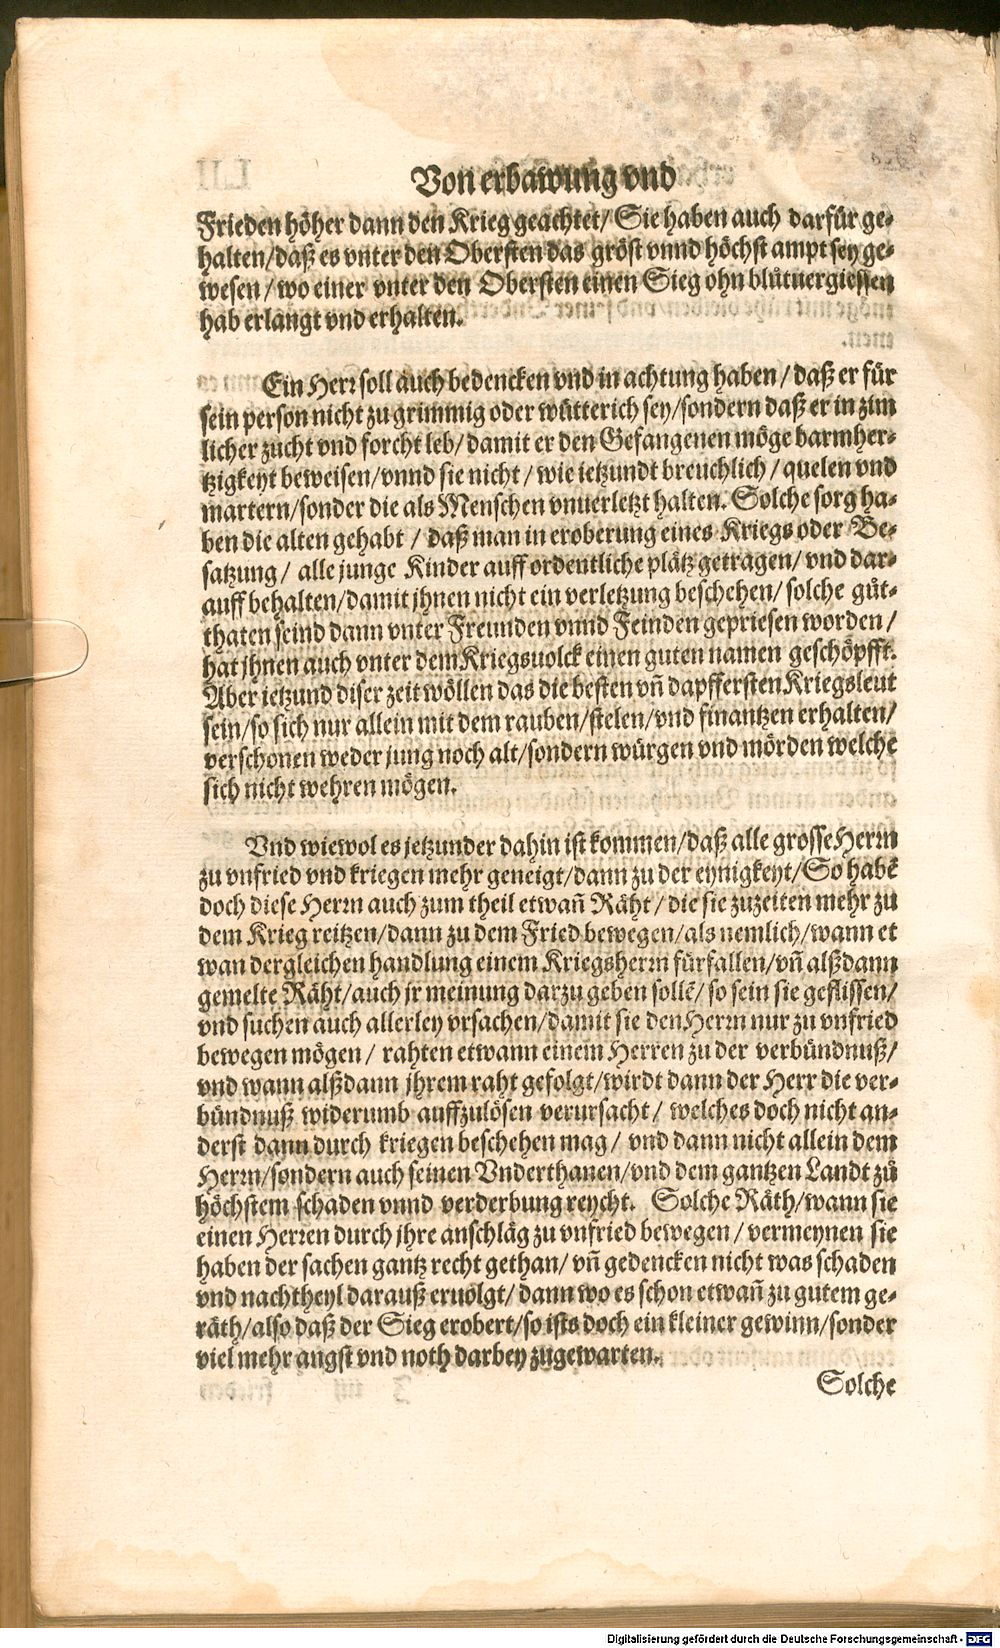 Von erbawung vnd
Frieden höher dann den Krieg geachtet/ Sie haben auch darfür ge-
halten/daß es vnter den Obersten das gröst vnnd höchst ampt sey ge-
wesen/ wo einer vnter den Obersten einen Sieg ohn blůtuergiessen
hab erlangt vnd erhalten.
Ein Herr soll auch bedencken vnd in achtung haben/ daß er für
sein person nicht zu grimmig oder wütterich sey/sondern daß er in zim
licher zucht vnd forcht leb/ damit er den Gefangenen möge barmher-
tzigkeyt beweisen/vnnd sie nicht/ wie ietzundt breuchlich/ quelen vnd
martern/sonder die als Menschen vnuerletzt halten. Solche sorg ha-
ben die alten gehabt/ daß man in eroberung eines Kriegs oder Be-
satzung/ alle junge Kinder auff ordentliche plätz getragen/ vnd dar-
auff behalten/damit jhnen nicht ein verletzung beschehen/ solche gůt-
thaten seind dann vnter Freunden vnnd Feinden gepriesen worden/
hat jhnen auch vnter dem Kriegsuolck einen guten namen geschöpfft.
Aber ietzund diser zeit wöllen das die besten vñ dapffersten Kriegsleut
sein/so sich nur allein mit dem rauben/stelen/vnd finantzen erhalten/
verschonen weder jung noch alt/sondern würgen vnd mörden welche
sich nicht wehren mögen.
Vnd wiewol es jetzunder dahin ist kommen/daß alle grosse Herrn
zu vnfried vnd kriegen mehr geneigt/dann zu der eynigkeyt/So habẽ
doch diese Herrn auch zum theil etwañ Räht/ die sie zuzeiten mehr zu
dem Krieg reitzen/dann zu dem Fried bewegen/als nemlich/wann et
wan dergleichen handlung einem Kriegsherrn fürfallen/vñ alßdann
gemelte Räht/auch jr meinung darzu geben sollẽ/ so sein sie geflissen/
vnd suchen auch allerley vrsachen/damit sie den Herrn nur zu vnfried
bewegen mögen/ rahten etwann einem Herren zu der verbündnuß/
vnd wann alßdann jhrem raht gefolgt/wirdt dann der Herr die ver-
bündnuß widerumb auffzulösen verursacht/ welches doch nicht an-
derst dann durch kriegen beschehen mag/ vnd dann nicht allein dem
Herrn/sondern auch seinen Vnderthanen/vnd dem gantzen Landt zů
höchstem schaden vnnd verderbung reycht. Solche Räth/wann sie
einen Herren durch jhre anschläg zu vnfried bewegen/ vermeynen sie
haben der sachen gantz recht gethan/ vñ gedencken nicht was schaden
vnd nachtheyl darauß eruolgt/ dann wo es schon etwañ zu gutem ge-
räth/also daß der Sieg erobert/so ists doch ein kleiner gewinn/sonder
viel mehr angst vnd noth darbey zugewarten.
Solche
Digitalisierung gefördert durch die Deutsche Forschungsgemeinschaft - DFG